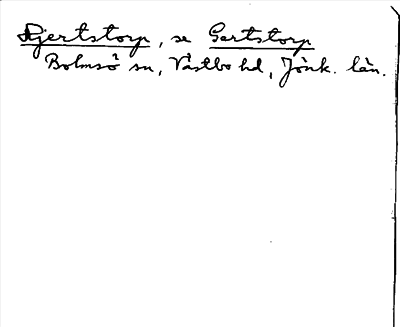 Hjertstorp, se Gertstorp
Bolmsö sn, Västbo hd, Jönk. län.